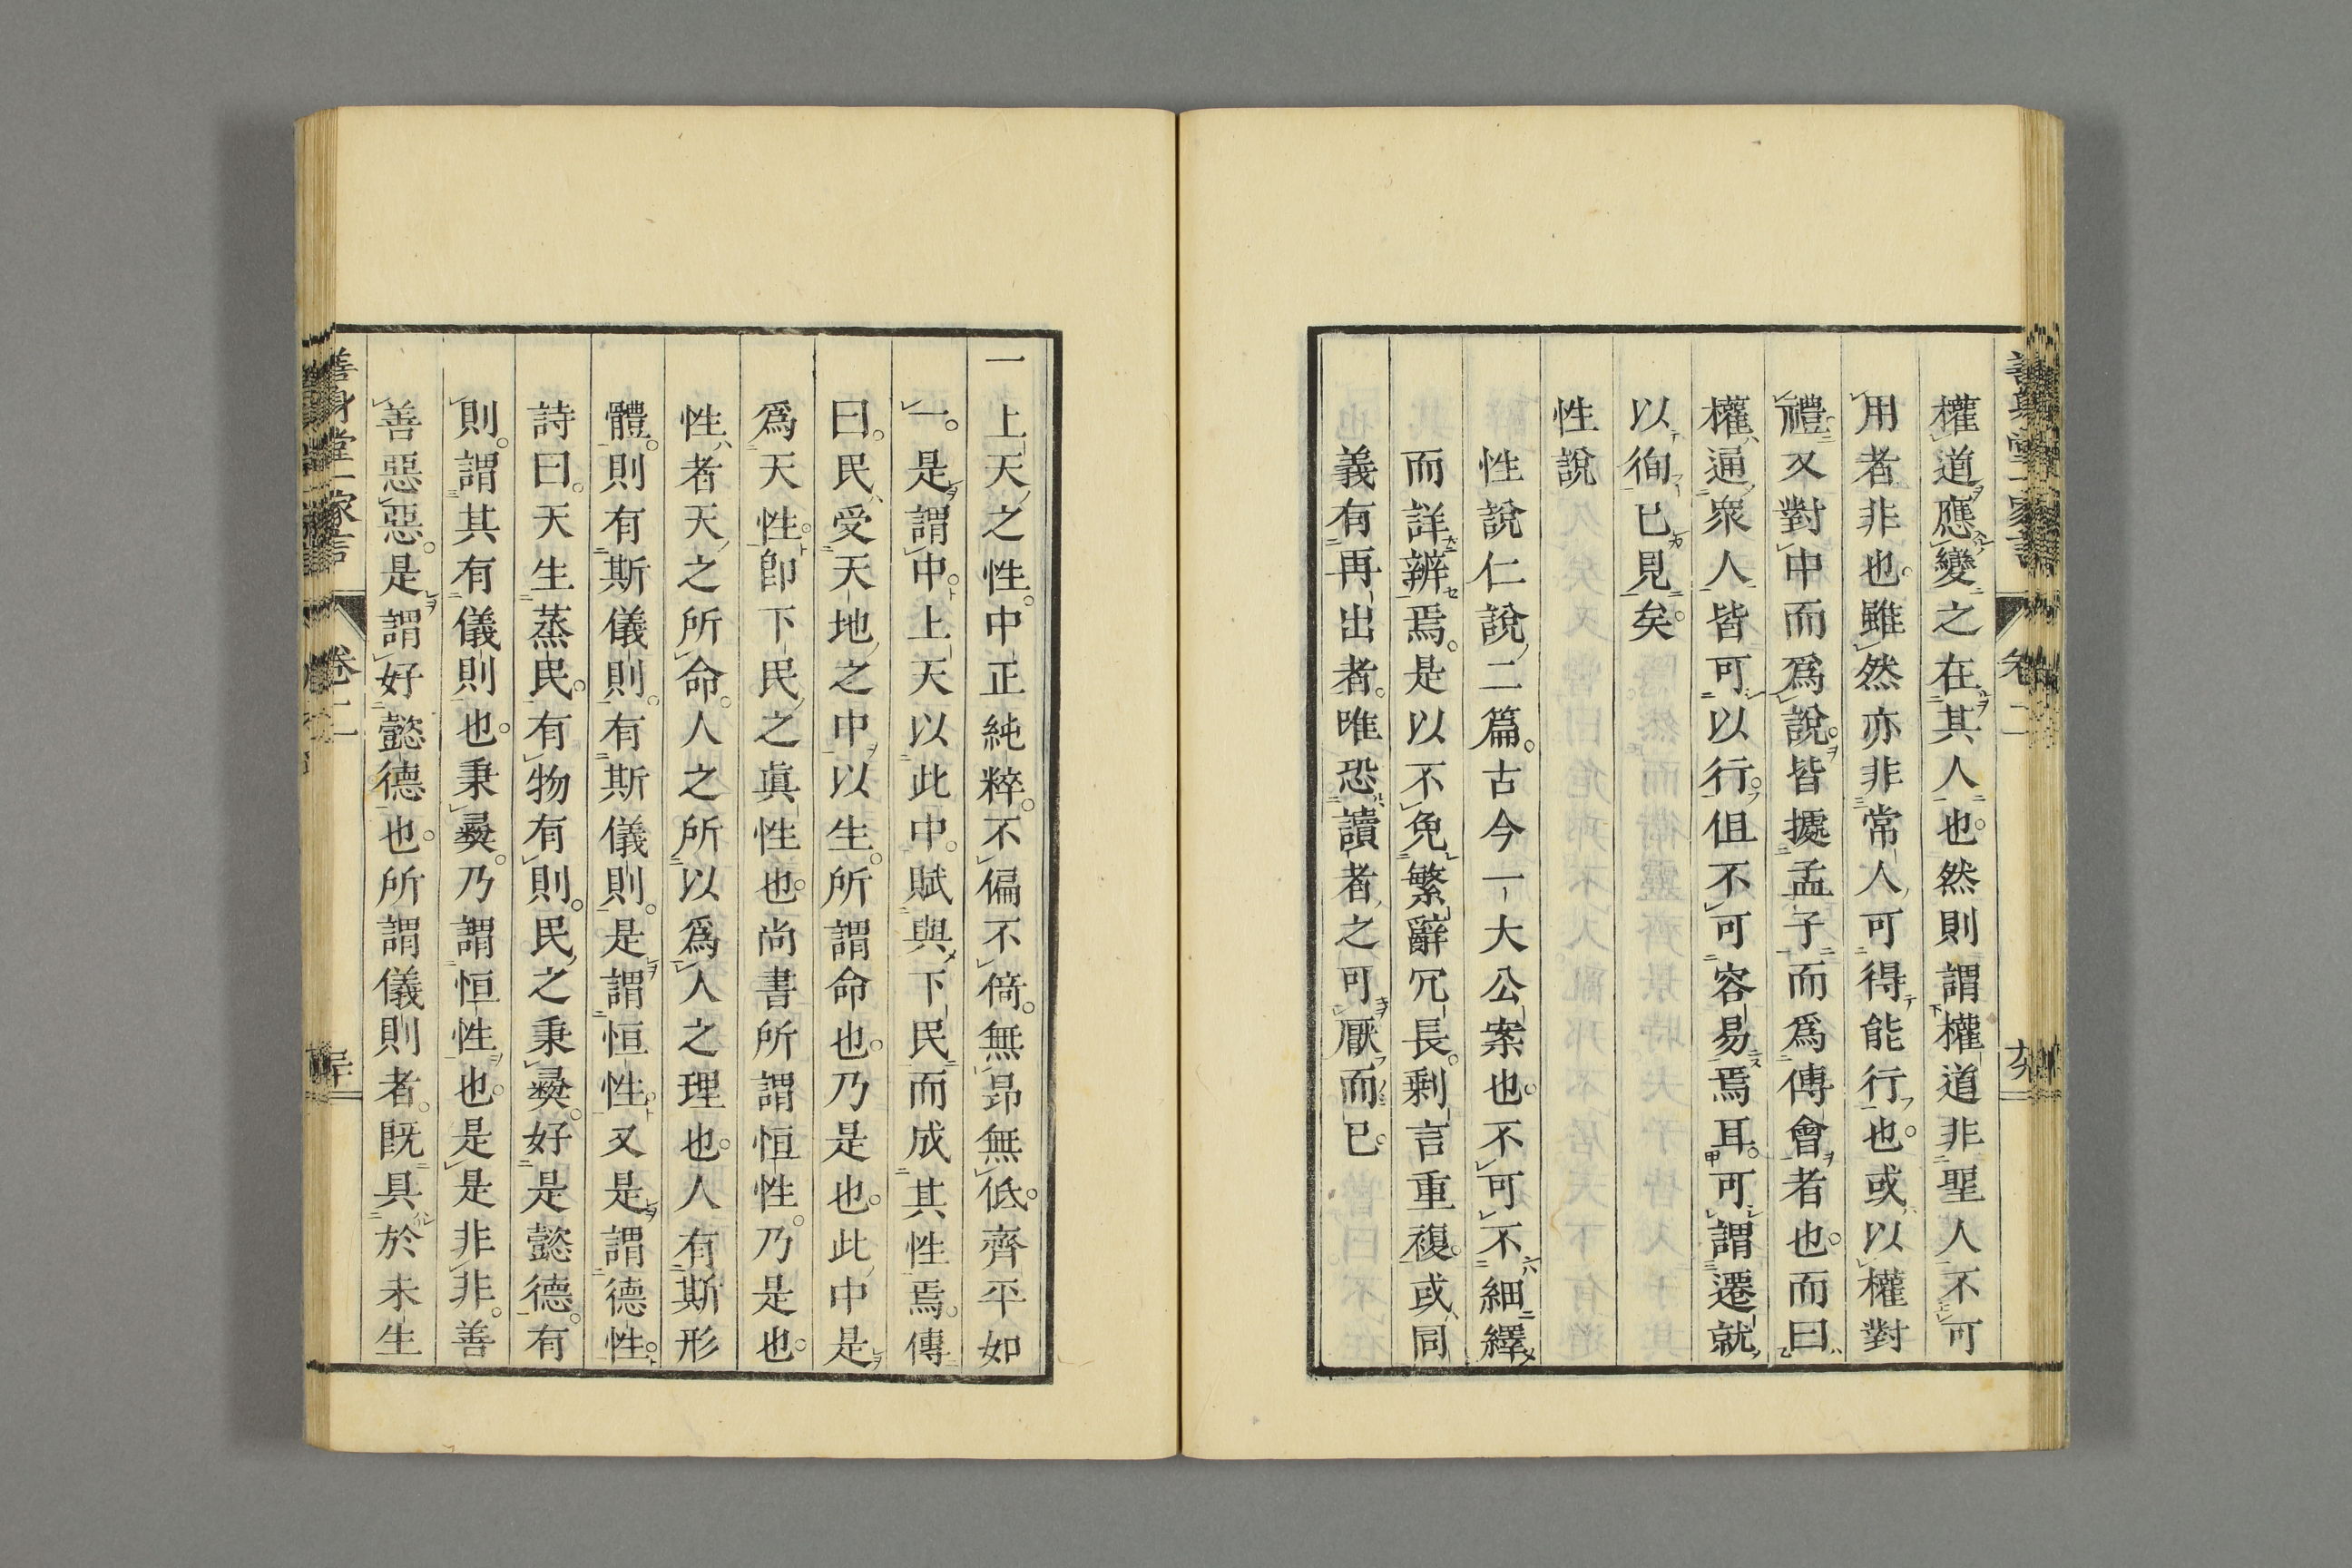 權道應變之在其人也。然則謂權道非聖人不可
用者非也。雖然亦非常人可得能行也。或以權對
禮又對中而爲說。皆據孟子而爲傅會者也。而曰
權通衆人皆可以行。但不可容易焉耳。可謂遷就
以徇已見矣。
性說
性說仁說二篇。古今一大公案也。不可不細繹
而詳辨焉。是以不免繁辭冗長。剩言重複。或同
義有再出者。唯恐讀者之可厭而已。
一上天之性。中正純粹。不偏不倚。無昻無低。齊平如
一。是謂中。上天以此中。賦與下民而成其性焉。傳
曰。民受天地之中以生。所謂命也。乃是也。此中是
爲天性。卽下民之眞性也。尚書所謂恒性。乃是也。
性者天之所命。人之所以爲人之理也。人有斯形
體。則有斯儀則。有斯儀則。是謂恒性。又是謂德性。
詩曰。天生蒸民。有物有則。民之秉彝。好是懿德。有
則。謂其有儀則也。秉彝。乃謂恒性也。是是非非。善
善惡惡。是謂好懿德也。所謂儀則者。旣具於未生
善身堂一家言
卷二